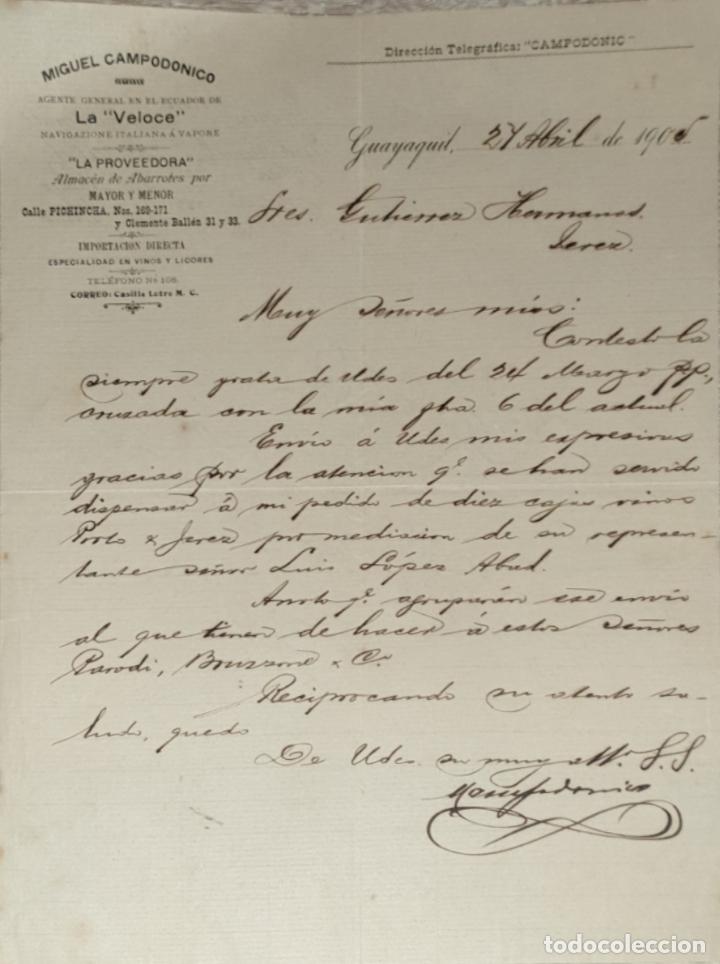 MIGUEL CAMPODONICO
AGENTE GENERAL EN EL ECUADOR DE
La "Veloce"
NAVIGAZIONE ITALIANA Á VAPORE
"LA PROVEEDORA"
Almacén de Abarrotes por
MAYOR Y MENOR
Calle PICHINCHA, Nos. 169-171
y Clemente Ballén 31 y 33.
IMPORTACION DIRECTA
ESPECIALIDAD EN VINOS Y LICORES
TELÉFONO No 108.
CORREO: Casilla Letra M. C.
Dirección Telegráfica: "CAMPODONIC"
Guayaquil, 27 Abril de 190
Sres. Gutierrez Hermanos.
Jerez.
Muy Señores mios:
Contesto la
siempre grata de Udes del 24 Marzo pp.,
cruzada con la mía fha. 6 del actual.
Envío á Udes mis expresivas
gracias por la atencion q.e se han servido
dispensar á mi pedido de diez cajas vinos
Porto & Jerez por mediacion de su represen-
tante señor Luis López Abad.
Anoto q.e agruparán ese envío
al que tienen de hacer á estos Señores
Parodi, Bruzzone & Ca.
Reciprocando su atento sa-
ludo, quedo
De Udes. su muy atto. S. S.
MCampodonico
todocoleccion